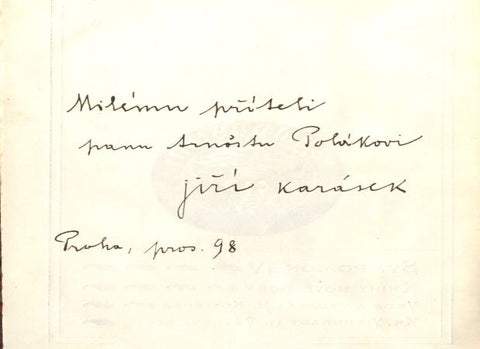 Milému příteli
panu Arnoštu Polákovi
Jiří Karásek
Praha, pros. 98